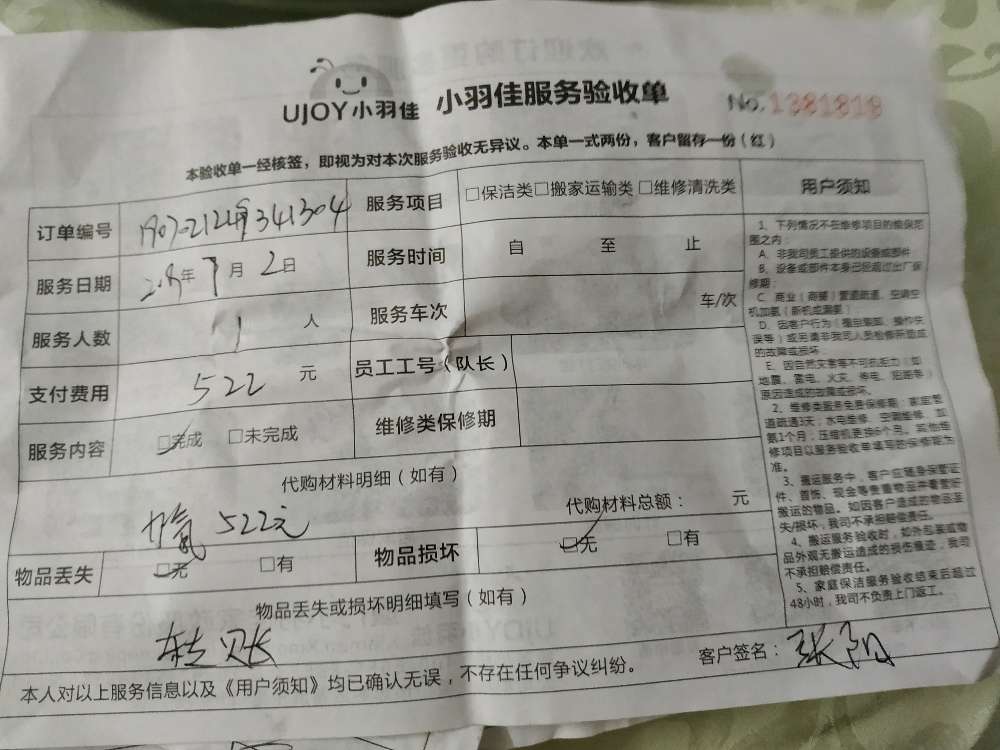 UJOY小羽佳 小羽佳服务验收单 No.1381819
本验收单一经核签，即视为对本次服务验收无异议。本单一式两份，客户留存一份（红）
订单编号 服务项目 □保洁类□搬家运输类□维修清洗类
服务日期 年7月2日 服务时间 自 至 止
服务人数 人 服务车次 车/次
支付费用 522元 员工工号（队长）
服务内容 □完成 □未完成 维修类保修期
代购材料明细（如有）
加氟 522元 代购材料总额： 元
物品丢失 □无 □有 物品损坏 □无 □有
物品丢失或损坏明细填写（如有）
转账
客户签名：
本人对以上服务信息以及《用户须知》均已确认无误，不存在任何争议纠纷。
用户须知
1、下列情况不在维修项目的维保范
围之内：
A、非我司员工提供的设备或部件
B、设备或部件本身已经超过出厂保
修期；
C、商业（商铺）管道疏通、空调空
机加氨（新机或漏氨）
D、因客户行为（擅自装卸、操作失
误等）或另请非我司人员检修所造成
的故障或损坏
E、因自然灾害等不可抗拒力（如
地震、雷电、火灾、
原因造成的故障或损坏。
2、维修类服务免费保修期：家庭管
道疏通3天；水电维修、空调维修、加
氨1个月；压缩机更换6个月。其他维
修项目以服务验收单填写的保修期为
准。
3、搬运服务中，客户应随身保管证
件、首饰、现金等贵重物品并看管好
搬运的物品。如因客户造成的物品丢
失/损坏，我司不承担赔偿责任。
4、搬运服务验收时，如外包装或物
品外观无搬运造成的损伤痕迹，我司
不承担赔偿责任。
5、家庭保洁服务验收结束后超过
48小时，我司不负责上门返工。